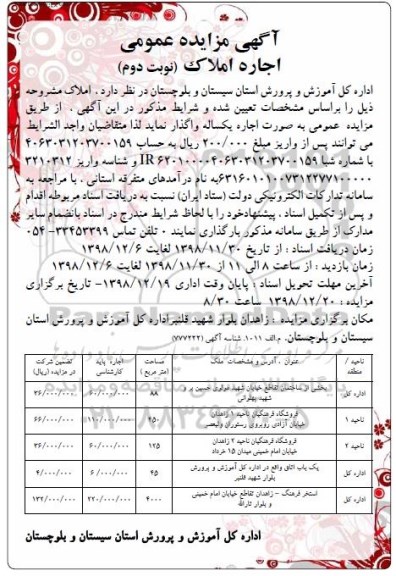 آگهی مزایده عمومی
اجاره املاک (نوبت دوم)
اداره کل آموزش و پرورش استان سیستان و بلوچستان در نظر دارد . املاک مشروحه
ذیل را براساس مشخصات تعیین شده و شرایط مذکور در این آگهی . از طریق
مزایده عمومی به صورت اجاره یکساله واگذار نماید لذا متقاضیان واجد الشرایط
می توانند پس از واریز مبلغ ۲۰۰/۰۰۰ ریال به حساب ۴۰۶۳۰۳۱۲۰۳۷۰۰۱۵۹
با شماره شبا IR ۶۲۰۱۰۰۰۰۴۰۶۳۰۳۱۲۰۳۷۰۰۱۵۹ و شناسه واریز
به نام درآمدهای متفرقه استانی . با مراجعه به
سامانه تدارکات الکترونیکی دولت (ستاد ایران) نسبت به دریافت اسناد مربوطه اقدام
و پس از تکمیل اسناد . پیشنهاد خود را با لحاظ شرایط مندرج در اسناد بانضمام سایر
مدارک از طریق سامانه مذکور بارگذاری نمایند ० تلفن تماس ۳۳۴۵۳۳۹۹-۰۵۴
زمان دریافت اسناد : از تاریخ ۱۳۹۸/۱۱/۳۰ لغایت ۱۳۹۸/۱۲/۶
زمان بازدید : از ساعت ۸ الی ۱۱ از ۱۳۹۸/۱۱/۳۰ لغایت ۱۳۹۸/۱۲/۶
آخرین مهلت تحویل اسناد : پایان وقت اداری ۱۳۹۸/۱۲/۱۹- تاریخ برگزاری
مزایده : ۱۳۹۸/۱۲/۲۰ ساعت ۸/۳۰
مکان برگزاری مزایده : زاهدان بلوار شهید قلنبر اداره کل آموزش و پرورش استان
سیستان و بلوچستان. م الف ۱۰۱۱. شناسه آگهی (۷۷۷۲۲۲)
ناحیه / منطقه عنوان . آدرس و مشخصات ملک مساحت (متر مربع ) اجاره پایه کارشناسی تضمین شرکت در مزایده (ریال)
اداره کل بخشی از ساختمان تقاطع خیابان شهید مولوی حسین بر و شهید پهلوانی ۸۸ ۶۰/۰۰۰/۰۰۰ ۳۶/۰۰۰/۰۰۰
ناحیه ۱ فروشگاه فرهنگیان ناحیه ۱ زاهدان خیابان آزادی روبروی رستوران ولیعصر ۴۵۰ ۱۱۰/۰۰۰/۰۰۰ ۶۶/۰۰۰/۰۰۰
ناحیه ۲ فروشگاه فرهنگیان ناحیه ۲ زاهدان خیابان امام خمینی میدان ۱۵ خرداد ۱۲۵ ۶۰/۰۰۰/۰۰۰ ۳۶/۰۰۰/۰۰۰
اداره کل یک باب اتاق واقع در اداره کل آموزش و پرورش بلوار شهید قلنبر ۴۵ ۶/۰۰۰/۰۰۰ ۴/۰۰۰/۰۰۰
اداره کل استخر فرهنگ – زاهدان تقاطع خیابان امام خمینی و بلوار ثارالله ۴۰۰۰ ۲۲۰/۰۰۰/۰۰۰ ۱۳۲/۰۰۰/۰۰۰
اداره کل آموزش و پرورش استان سیستان و بلوچستان